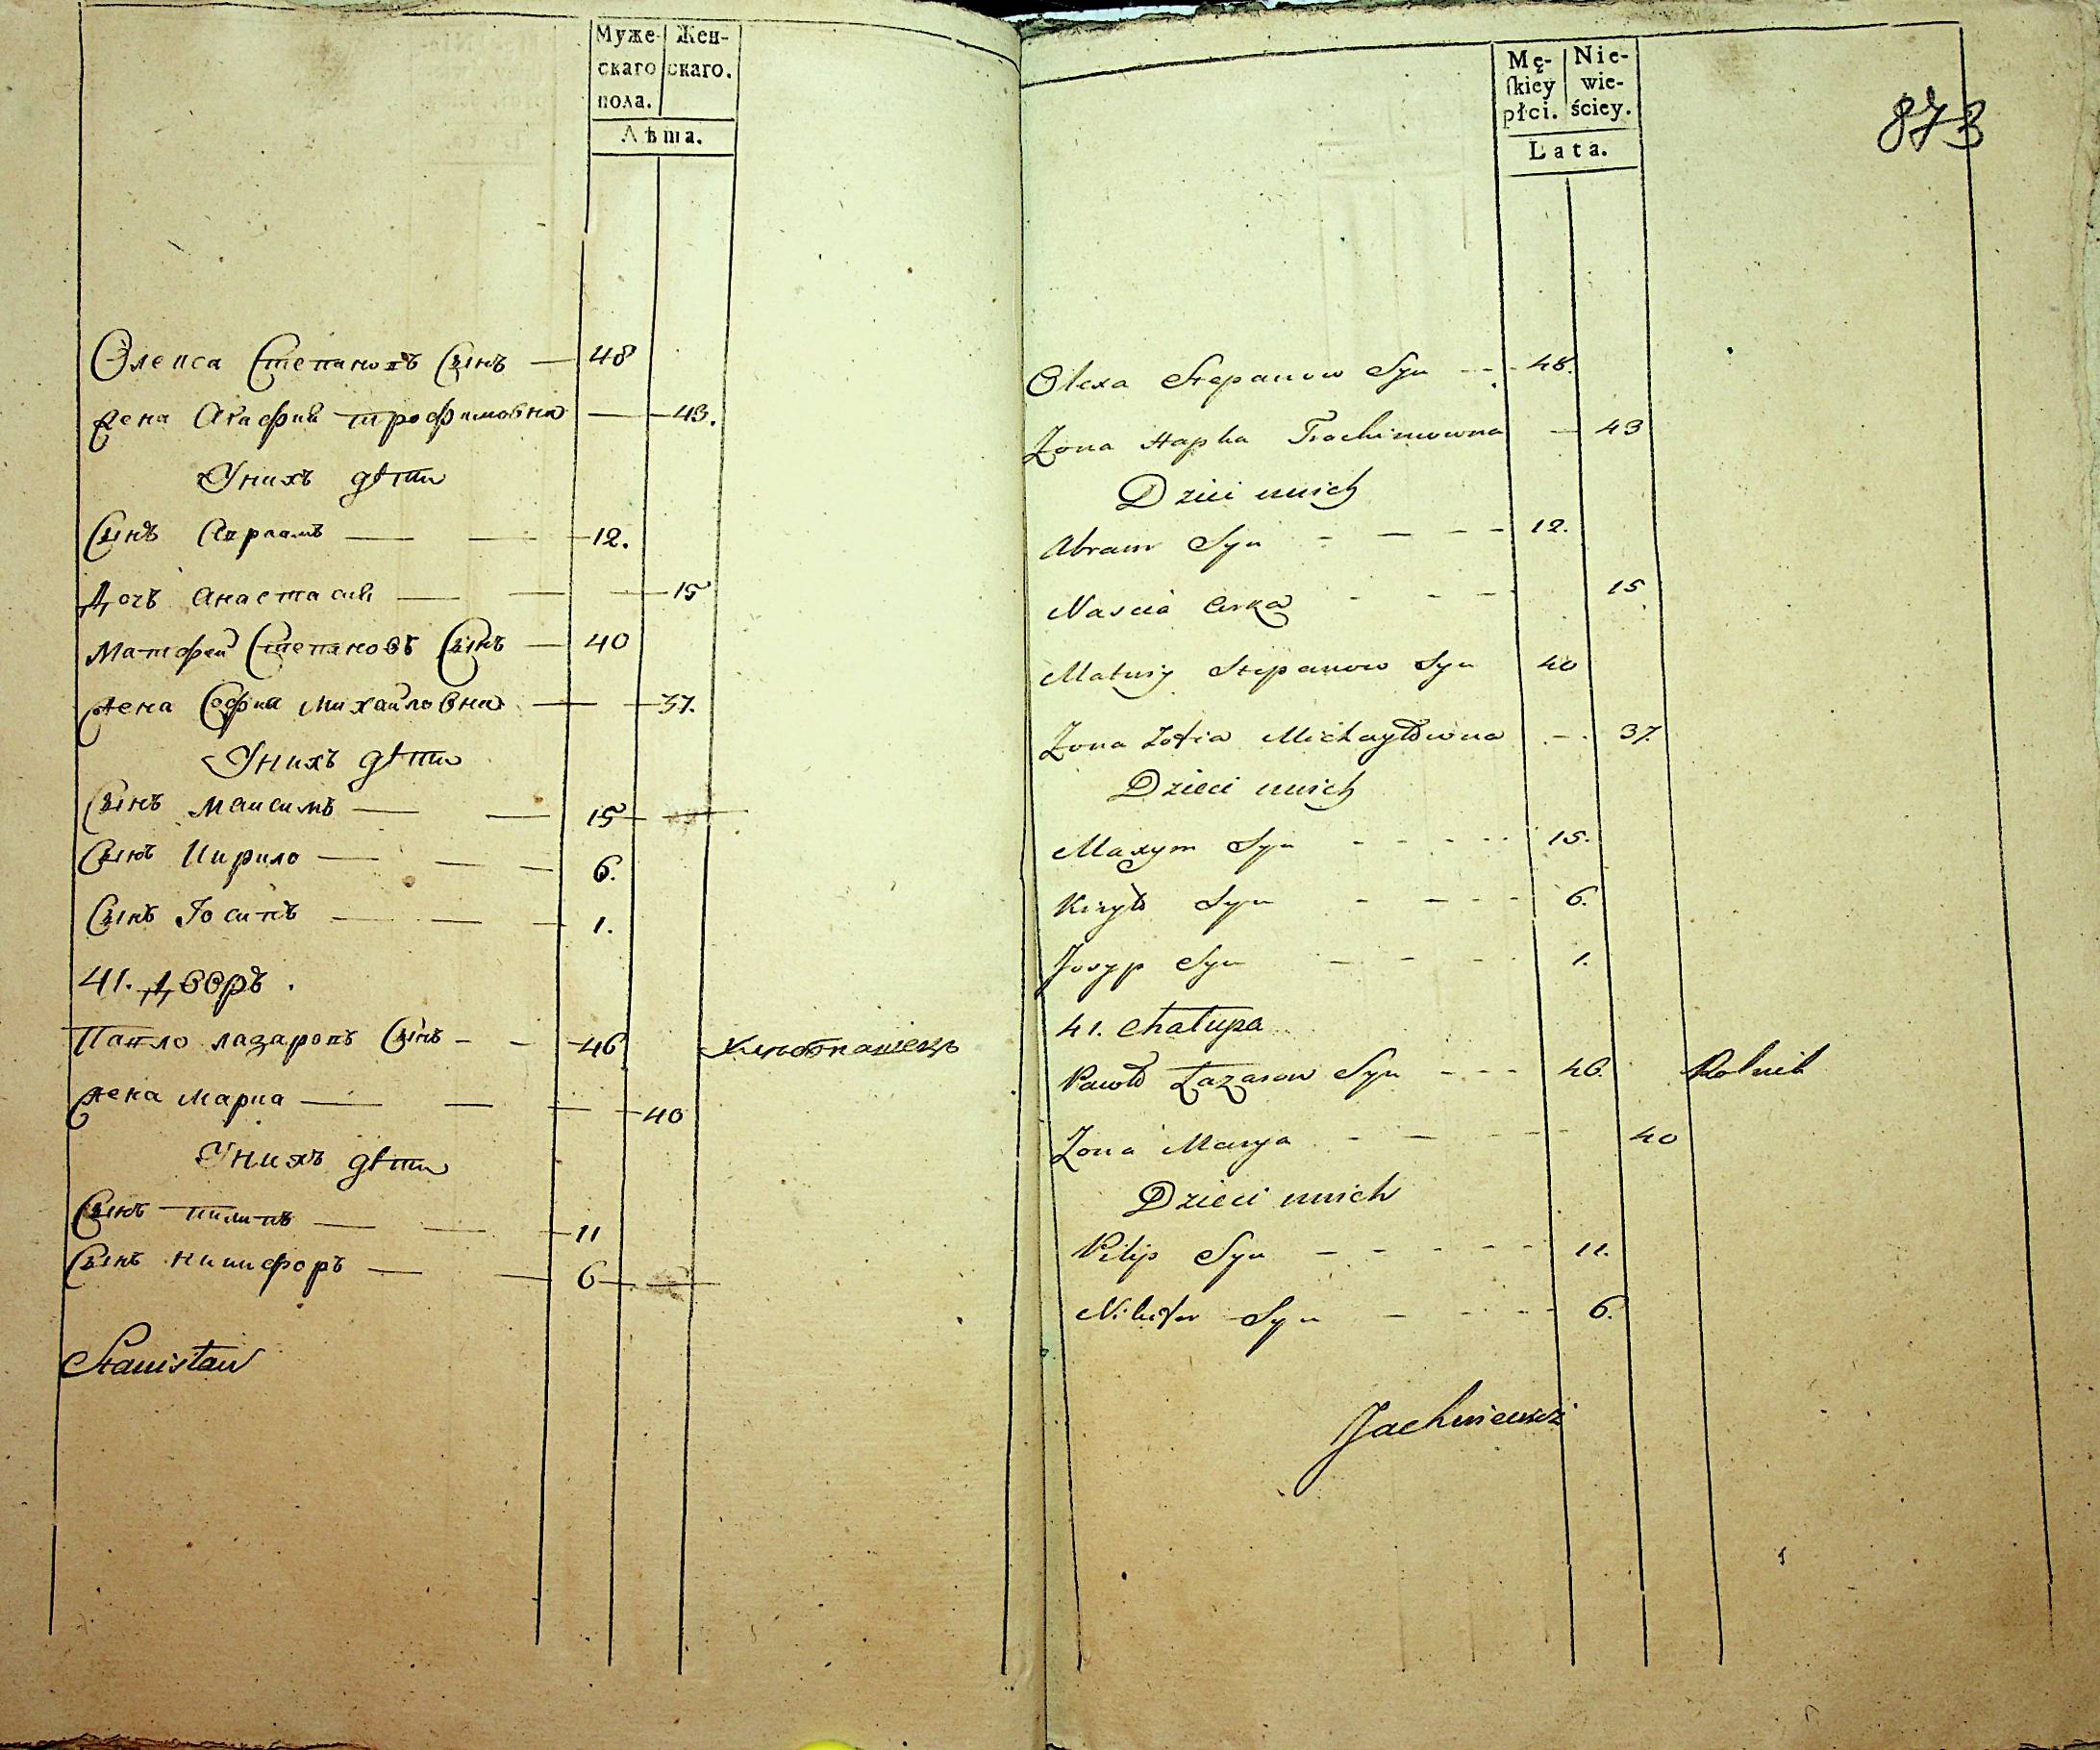 Муже- Жен-
скаго скаго.
пола.
Лѣта.
Олекса Степановъ Сынъ — 48
Жена Агафия Трофимовна — 43.
У нихъ дѣти
Сынъ Авраамъ — 12.
Дочъ Анастасия — 15
Матфей Степановъ Сынъ — 40
Жена София Михайловна — 37.
У нихъ дѣти
Сынъ Максимъ — 15
Сынъ Кирило — 6.
Сынъ Іосипъ — 1.
41. Дворъ.
Павло Лазаровъ Сынъ — 46 Хлѣбопашецъ
Жена Мариа — 40
У нихъ дѣти
Сынъ Пилипъ — 11
Сынъ Никифоръ — 6
Stanisław
873
Mę- Nie-
ſkiey wie-
płci. ściey.
Lata.
Olexa Stepanow Syn — 48.
Zona Hapka Trochimowna — 43
Dzieci unich
Abram Syn — 12.
Nascia Corka — 15
Matwiy Stepanow Syn 40
Zona Zofia Michayłowna — 37.
Dzieci unich
Maxym Syn — 15.
Kiryło Syn — 6.
Josyp Syn — 1.
41. Chałupa
Pawło Łazarow Syn — 46. Rolnik
Zona Marya — 40
Dzieci unich
Pilip Syn — 11.
Nikifor Syn — 6.
Jachniewicz